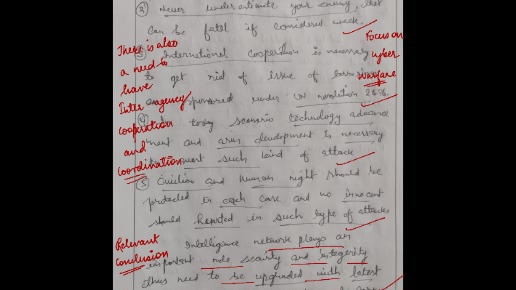 ② Never underestimate your enemy, that
can be fatal if considered weak.
There is also
a need to
have
Inter agency
cooperation
and
coordination
Focus on
cyber
warfare
③ International cooperation is necessary
to get rid of issue of
sponsored under UN resolution
④ In today scenario technology advance
ment and arms development is necessary
to such kind of attack
⑤ Civilian and human right should be
protected in each case and no innocent
should in such type of attacks
Relevant
conclusion
Intelligence network plays an
important role security and integerity
thus need to be upgraded with latest